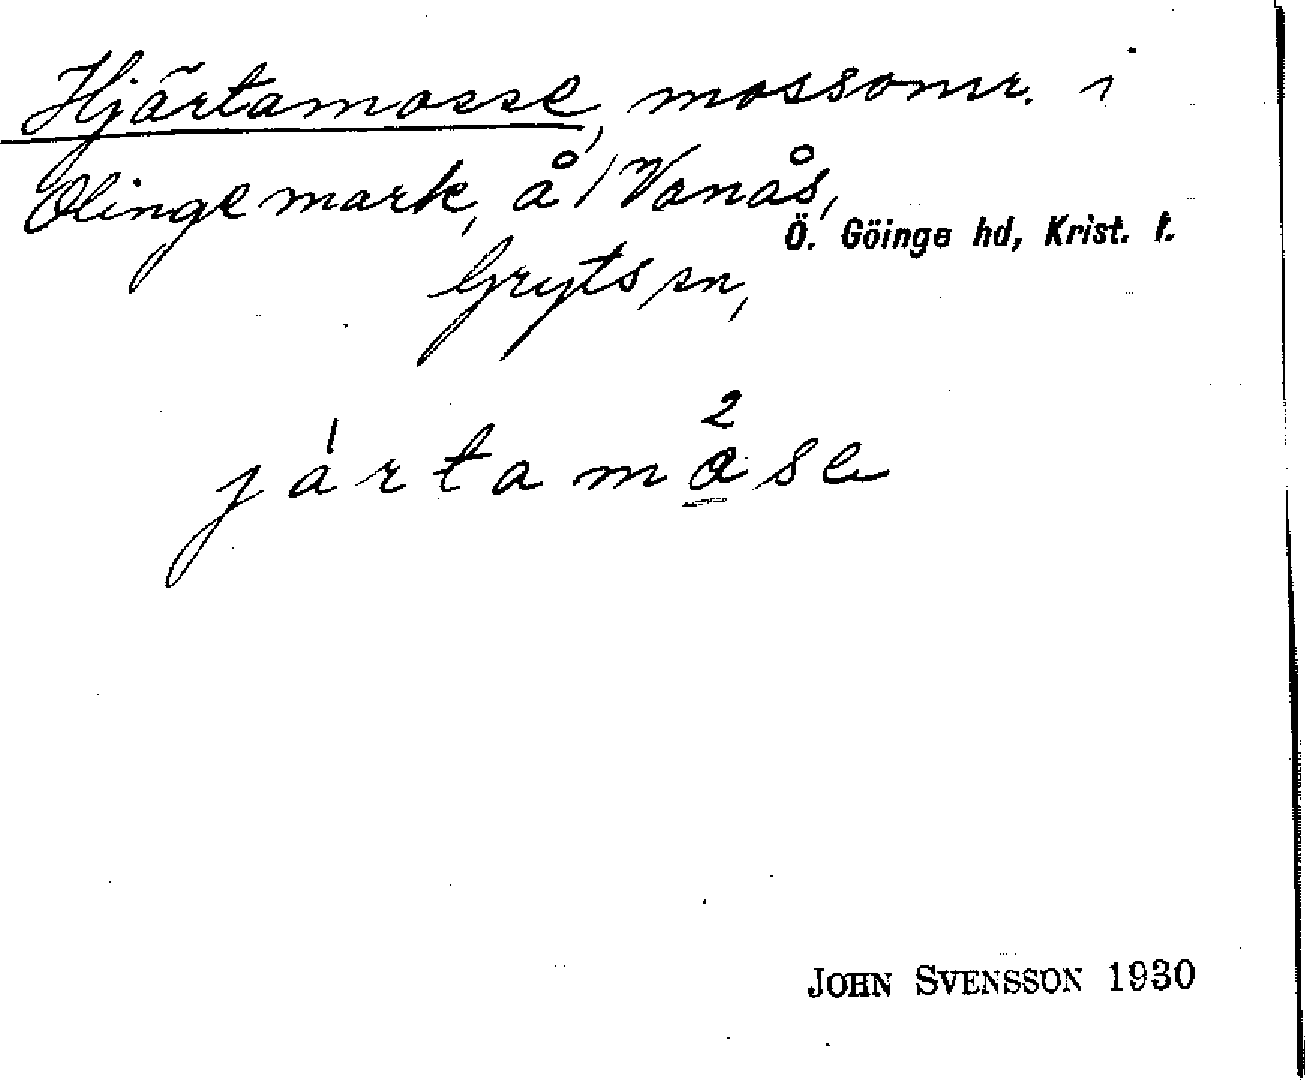 Hjärtamosse, mossomr. i
Olinge mark, å / Vanås,
Ö. Göinge hd, Krist. l.
Gryts sn,
1 2
jartamåse
JOHN SVENSSON 1930